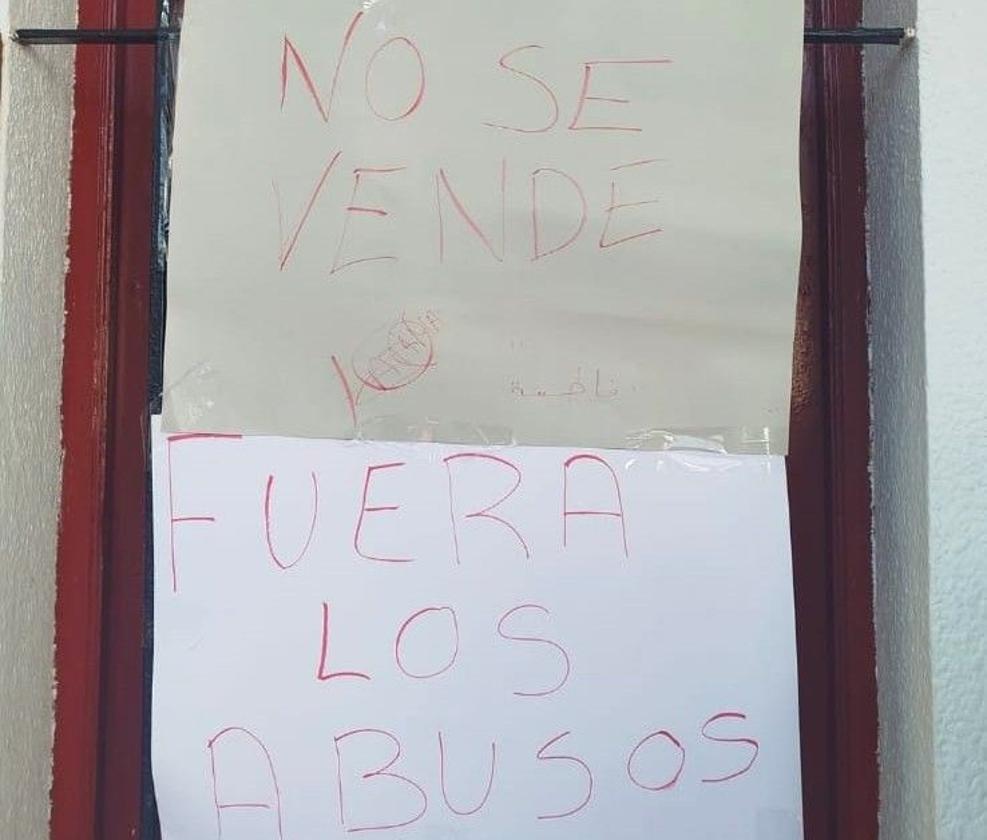 NO SE
VENDE
FUERA
LOS
ABUSOS